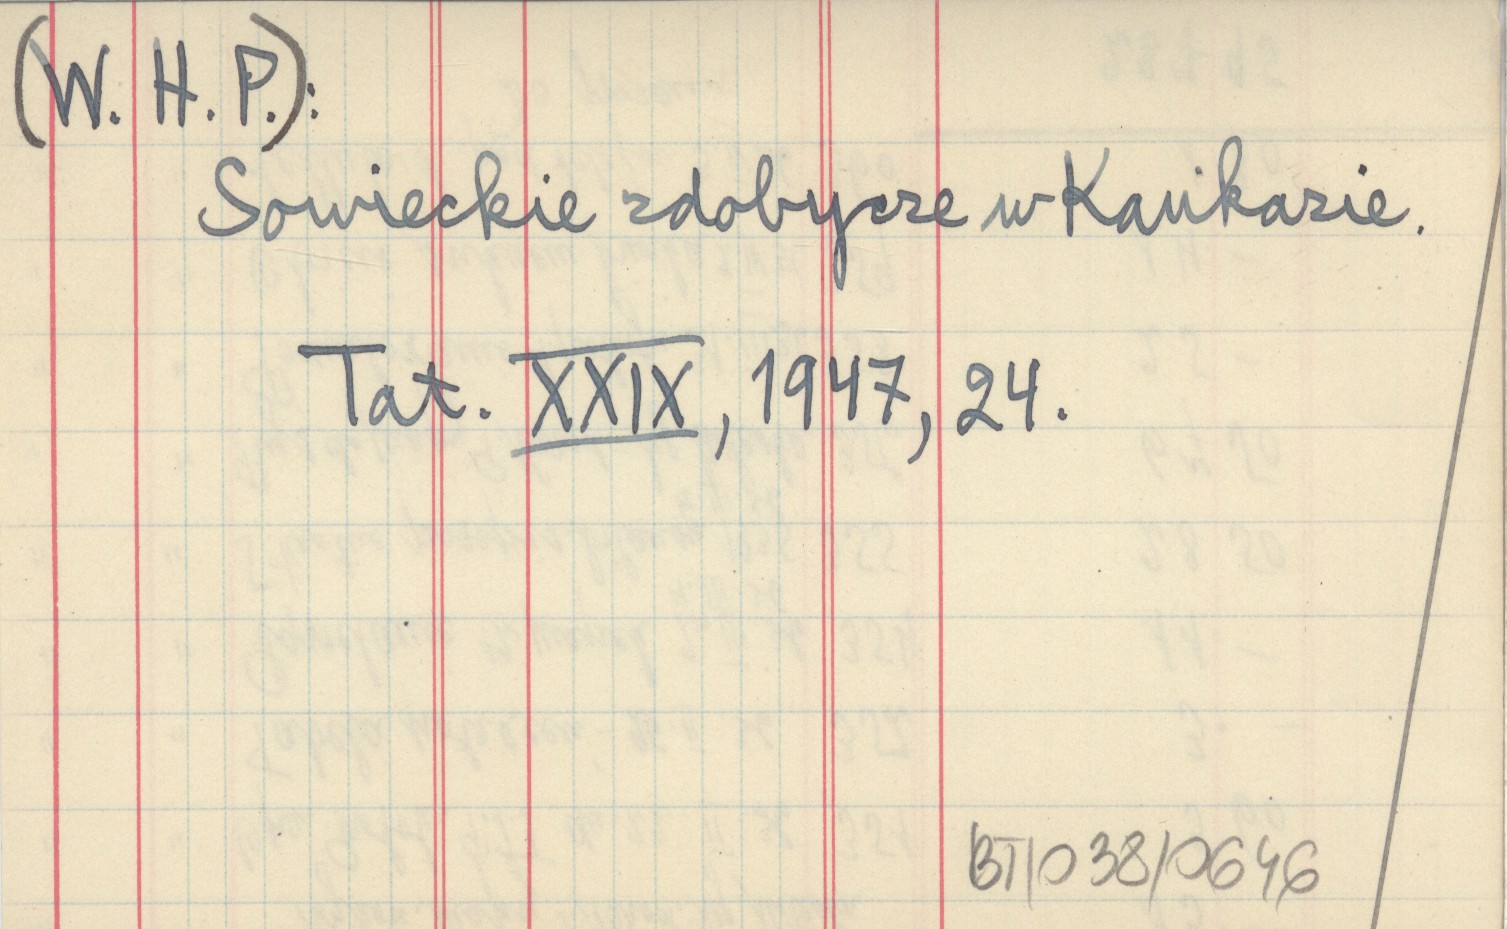 (W. H. P.):
Sowieckie zdobycze w Kaukazie.
Tat. XXIX, 1947, 24.
BT/038/0646